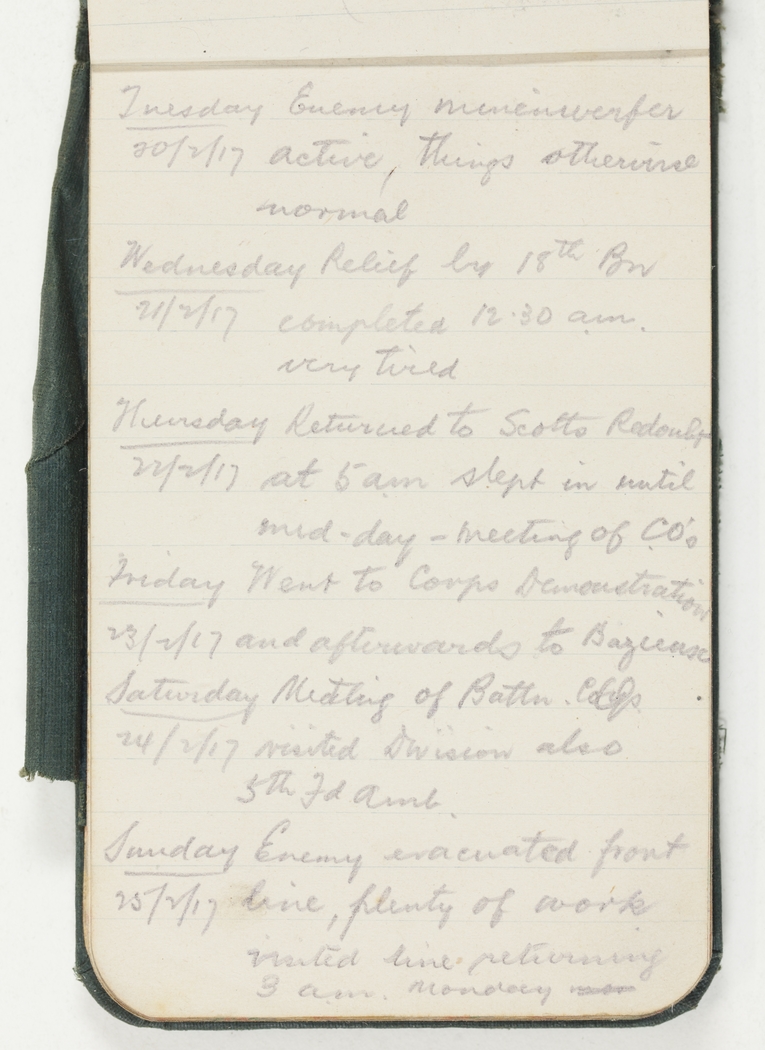 Tuesday Enemy minenwerfer
20/2/17 active, things otherwise
normal
Wednesday Relief by 18th Bn
21/2/17 completed 12.30 am.
very tired
Thursday Returned to Scotts Redoubt
22/2/17 at 5 am slept in until
mid-day - meeting of CO's
Friday Went to Corps Demonstration
23/2/17 and afterwards to
Saturday Meeting of Battn.
24/2/17 visited Division also
5th Fd Amb.
Sunday Enemy evacuated front
25/2/17 line, plenty of work
visited line returning
3 a.m. Monday